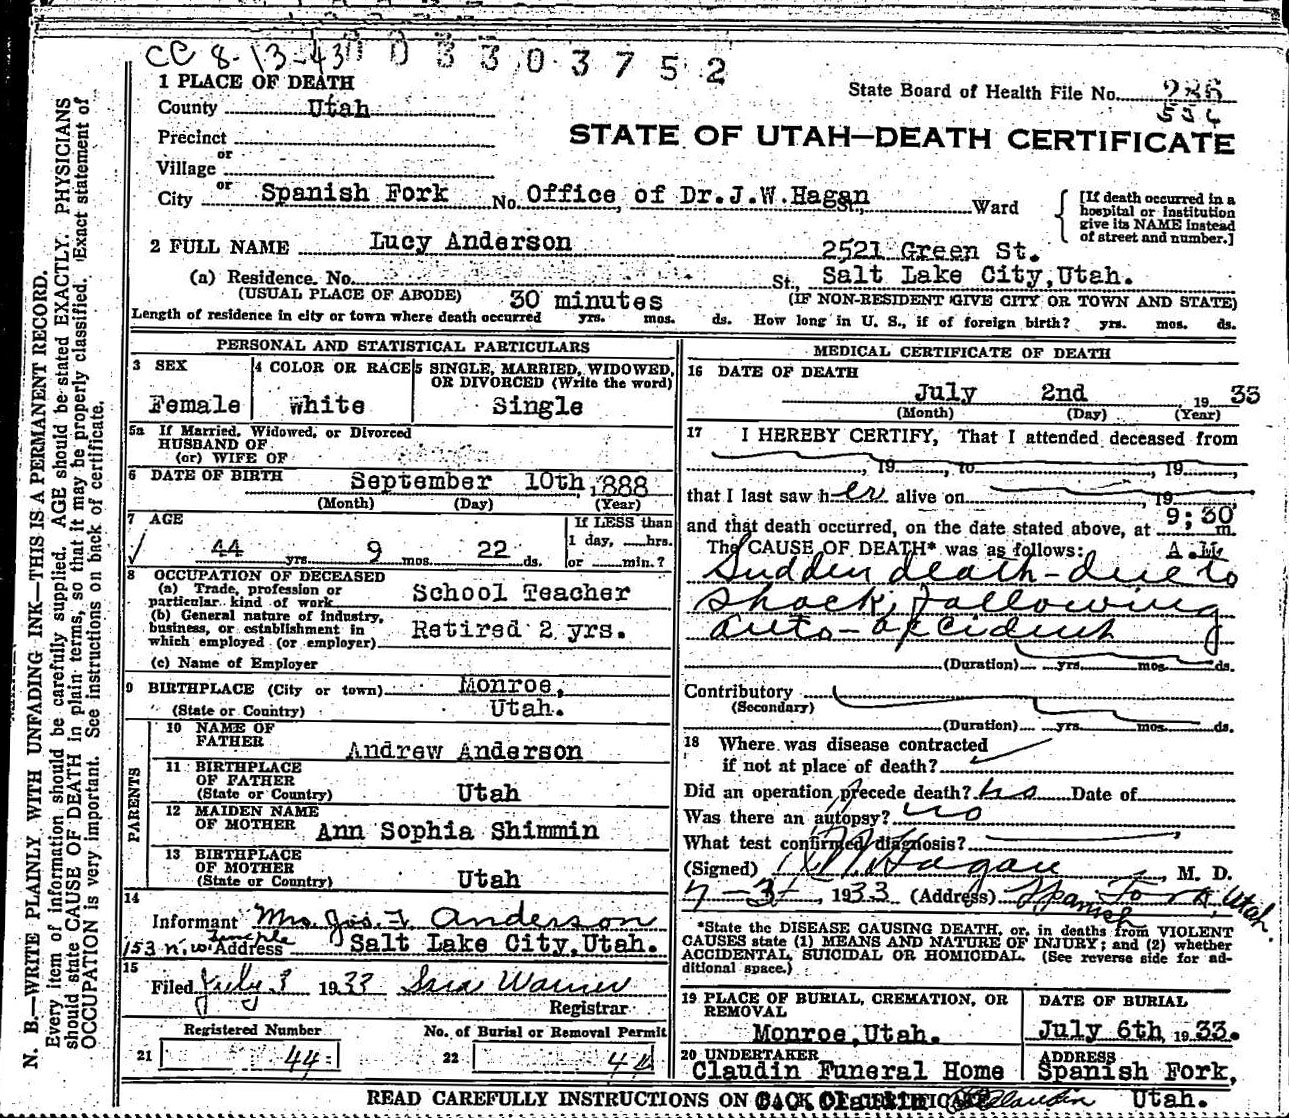 CC 8-13-43 0 3 3 0 3 7 5 2
1 PLACE OF DEATH
State Board of Health File No. 286
534
County Utah
STATE OF UTAH—DEATH CERTIFICATE
Precinct
or
Village
or
City Spanish Fork No. Office of Dr.J.W.Hagan St., Ward
[If death occurred in a
hospital or institution
give its NAME instead
of street and number.]
2 FULL NAME Lucy Anderson
2521 Green St.
(a) Residence. No. St., Salt Lake City,Utah.
(USUAL PLACE OF ABODE) (IF NON-RESIDENT GIVE CITY OR TOWN AND STATE)
30 minutes
Length of residence in city or town where death occurred yrs. mos. ds. How long in U. S., if of foreign birth? yrs. mos. ds.
PERSONAL AND STATISTICAL PARTICULARS
3 SEX
Female
4 COLOR OR RACE
White
5 SINGLE, MARRIED, WIDOWED,
OR DIVORCED (Write the word)
Single
5a If Married, Widowed, or Divorced
HUSBAND OF
(or) WIFE OF
6 DATE OF BIRTH September 10th, 1888
(Month) (Day) (Year)
7 AGE
44 yrs. 9 mos. 22 ds.
If LESS than
1 day, hrs.
or min.?
8 OCCUPATION OF DECEASED
(a) Trade, profession or
particular kind of work School Teacher
(b) General nature of industry,
business, or establishment in
which employed (or employer) Retired 2 yrs.
(c) Name of Employer
9 BIRTHPLACE (City or town) Monroe,
(State or Country) Utah.
PARENTS
10 NAME OF
FATHER Andrew Anderson
11 BIRTHPLACE
OF FATHER
(State or Country) Utah
12 MAIDEN NAME
OF MOTHER Ann Sophia Shimmin
13 BIRTHPLACE
OF MOTHER
(State or Country) Utah
14
Informant Mrs. Jos. F. Anderson
153 N. W. Temple
Address Salt Lake City,Utah.
15
Filed July 3 1933
Registrar
Registered Number
21 44
No. of Burial or Removal Permit
22 44
MEDICAL CERTIFICATE OF DEATH
16 DATE OF DEATH
July 2nd 19 33
(Month) (Day) (Year)
17 I HEREBY CERTIFY, That I attended deceased from
, 19 , to , 19
that I last saw her alive on 19
and that death occurred, on the date stated above, at 9;30 m.
The CAUSE OF DEATH* was as follows: A.M.
Sudden death - due to
shock, following
auto-accident
(Duration) yrs. mos. ds.
Contributory
(Secondary)
(Duration) yrs. mos. ds.
18 Where was disease contracted
if not at place of death?
Did an operation precede death? no Date of
Was there an autopsy? no
What test confirmed diagnosis?
(Signed) J W Hagan, M. D.
7-3, 1933 (Address) Spanish Fork, Utah.
*State the DISEASE CAUSING DEATH, or, in deaths from VIOLENT
CAUSES state (1) MEANS AND NATURE OF INJURY; and (2) whether
ACCIDENTAL, SUICIDAL OR HOMICIDAL. (See reverse side for ad-
ditional space.)
19 PLACE OF BURIAL, CREMATION, OR
REMOVAL
Monroe,Utah.
DATE OF BURIAL
July 6th 1933.
20 UNDERTAKER
Claudin Funeral Home
ADDRESS
Spanish Fork,
Utah.
READ CAREFULLY INSTRUCTIONS ON BACK OF CERTIFICATE
N. B.—WRITE PLAINLY WITH UNFADING INK—THIS IS A PERMANENT RECORD.
Every item of information should be carefully supplied. AGE should be stated EXACTLY. PHYSICIANS
should state CAUSE OF DEATH in plain terms, so that it may be properly classified. Exact statement of
OCCUPATION is very important. See instructions on back of certificate.